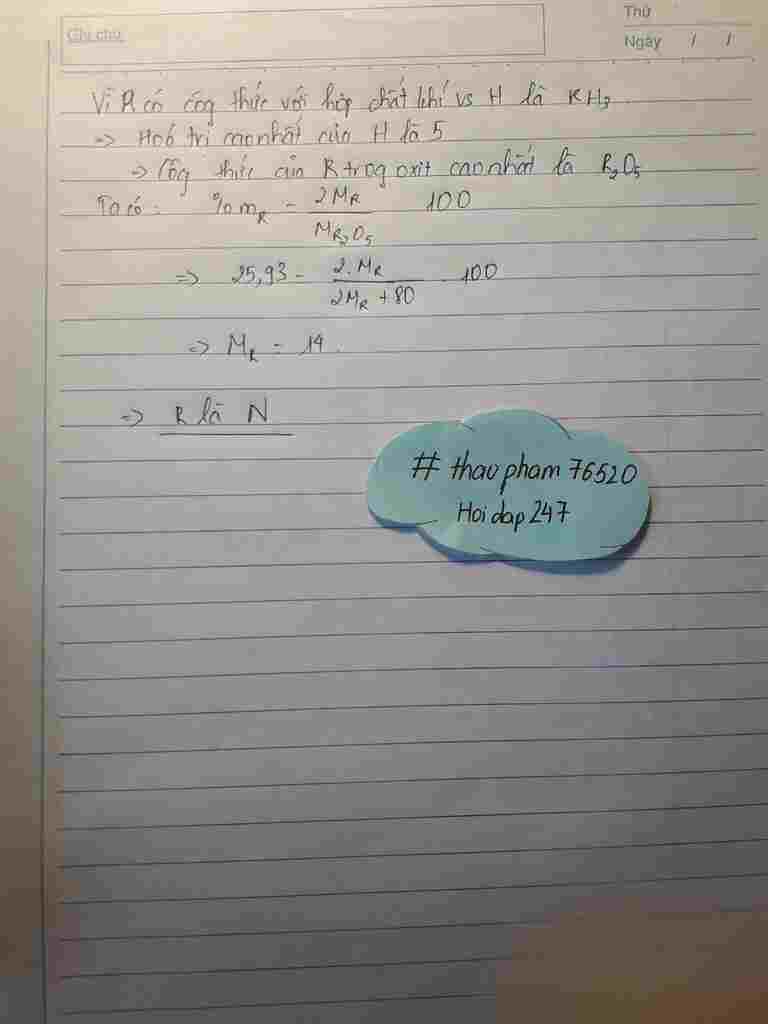 Ghi chú
Thứ
Ngày / /
Vì R có côg thức với hợp chất khí vs H là RH3
=> Hoá trị cao nhất của H là 5
=> Côg thức của R trog oxit cao nhất là R2O5
Ta có: %mR = 2MR / MR2O5 . 100
=> 25,93 = 2.MR / 2MR + 80 . 100
=> MR = 14.
=> R là N
# thaupham76520
Hoidap247